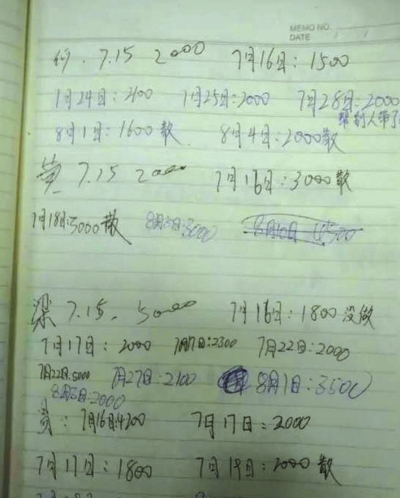 MEMO NO.
DATE / /
何. 7.15 2000 7月16日: 1500
1月24日: 2100 7月25日: 2000 7月28日: 2000
8月1日: 1600散 8月4日: 2000散
黄 7.15 2000 7月16日: 3000散
7月18日: 5000散 8月3日: 3000 8月6日
梁 7.15. 5000 7月16日: 1800 没做
7月17日: 2000 7月17日: 2300 7月22日: 2000
7月22日: 5000 7月27日: 2100 8月1日: 3500
8月3日: 2000
7月16日: 4200 7月17日: 2000
7月17日: 1800 7月19日: 2000 散